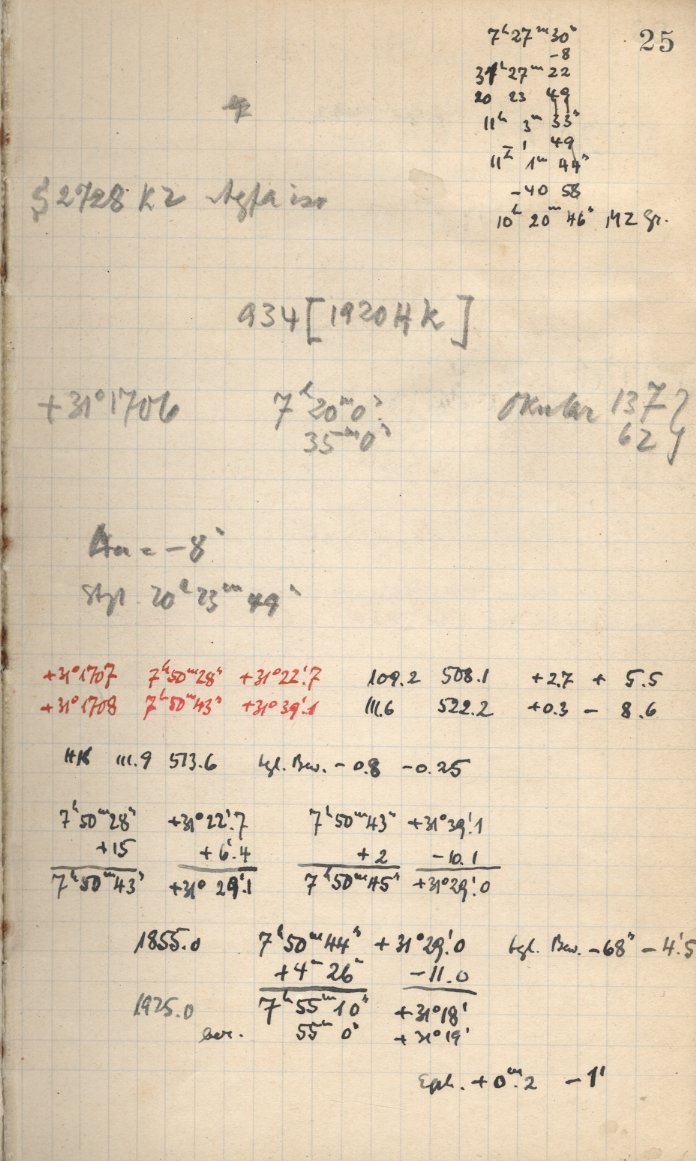 25
7ʰ27ᵐ30ˢ
-8
31ʰ27ᵐ22
20 23 49
11ʰ 3ᵐ 33ˢ
1 49
11ʰ 1ᵐ 44ˢ
-40 58
10ʰ 20ᵐ 46ˢ MZ Gr.
2728 KZ Agfa iso
934 [1920 HK]
+31°1706 7ʰ20ᵐ0ˢ Okular 137
35ᵐ0ˢ 62
= -8ˢ
20ʰ23ᵐ49ˢ
+31°1707 7ʰ50ᵐ28ˢ +31°22'.7 109.2 508.1 +2.7 + 5.5
+31°1708 7ʰ50ᵐ43ˢ +31°39'.1 111.6 522.2 +0.3 - 8.6
HK 111.9 513.6 tgl. Bew. -0.8 -0.25
7ʰ50ᵐ28ˢ +31°22'.7 7ʰ50ᵐ43ˢ +31°39'.1
+15 +6'.4 +2 -10.1
7ʰ50ᵐ43ˢ +31°29'.1 7ʰ50ᵐ45ˢ +31°29'.0
1855.0 7ʰ50ᵐ44ˢ +31°29'.0 tgl. Bew. -68ˢ -4'.5
+4ᵐ26ˢ -11.0
1925.0 7ʰ55ᵐ10ˢ +31°18'
ber. 55ᵐ0ˢ +31°19'
Eph. +0ᵐ.2 -1'